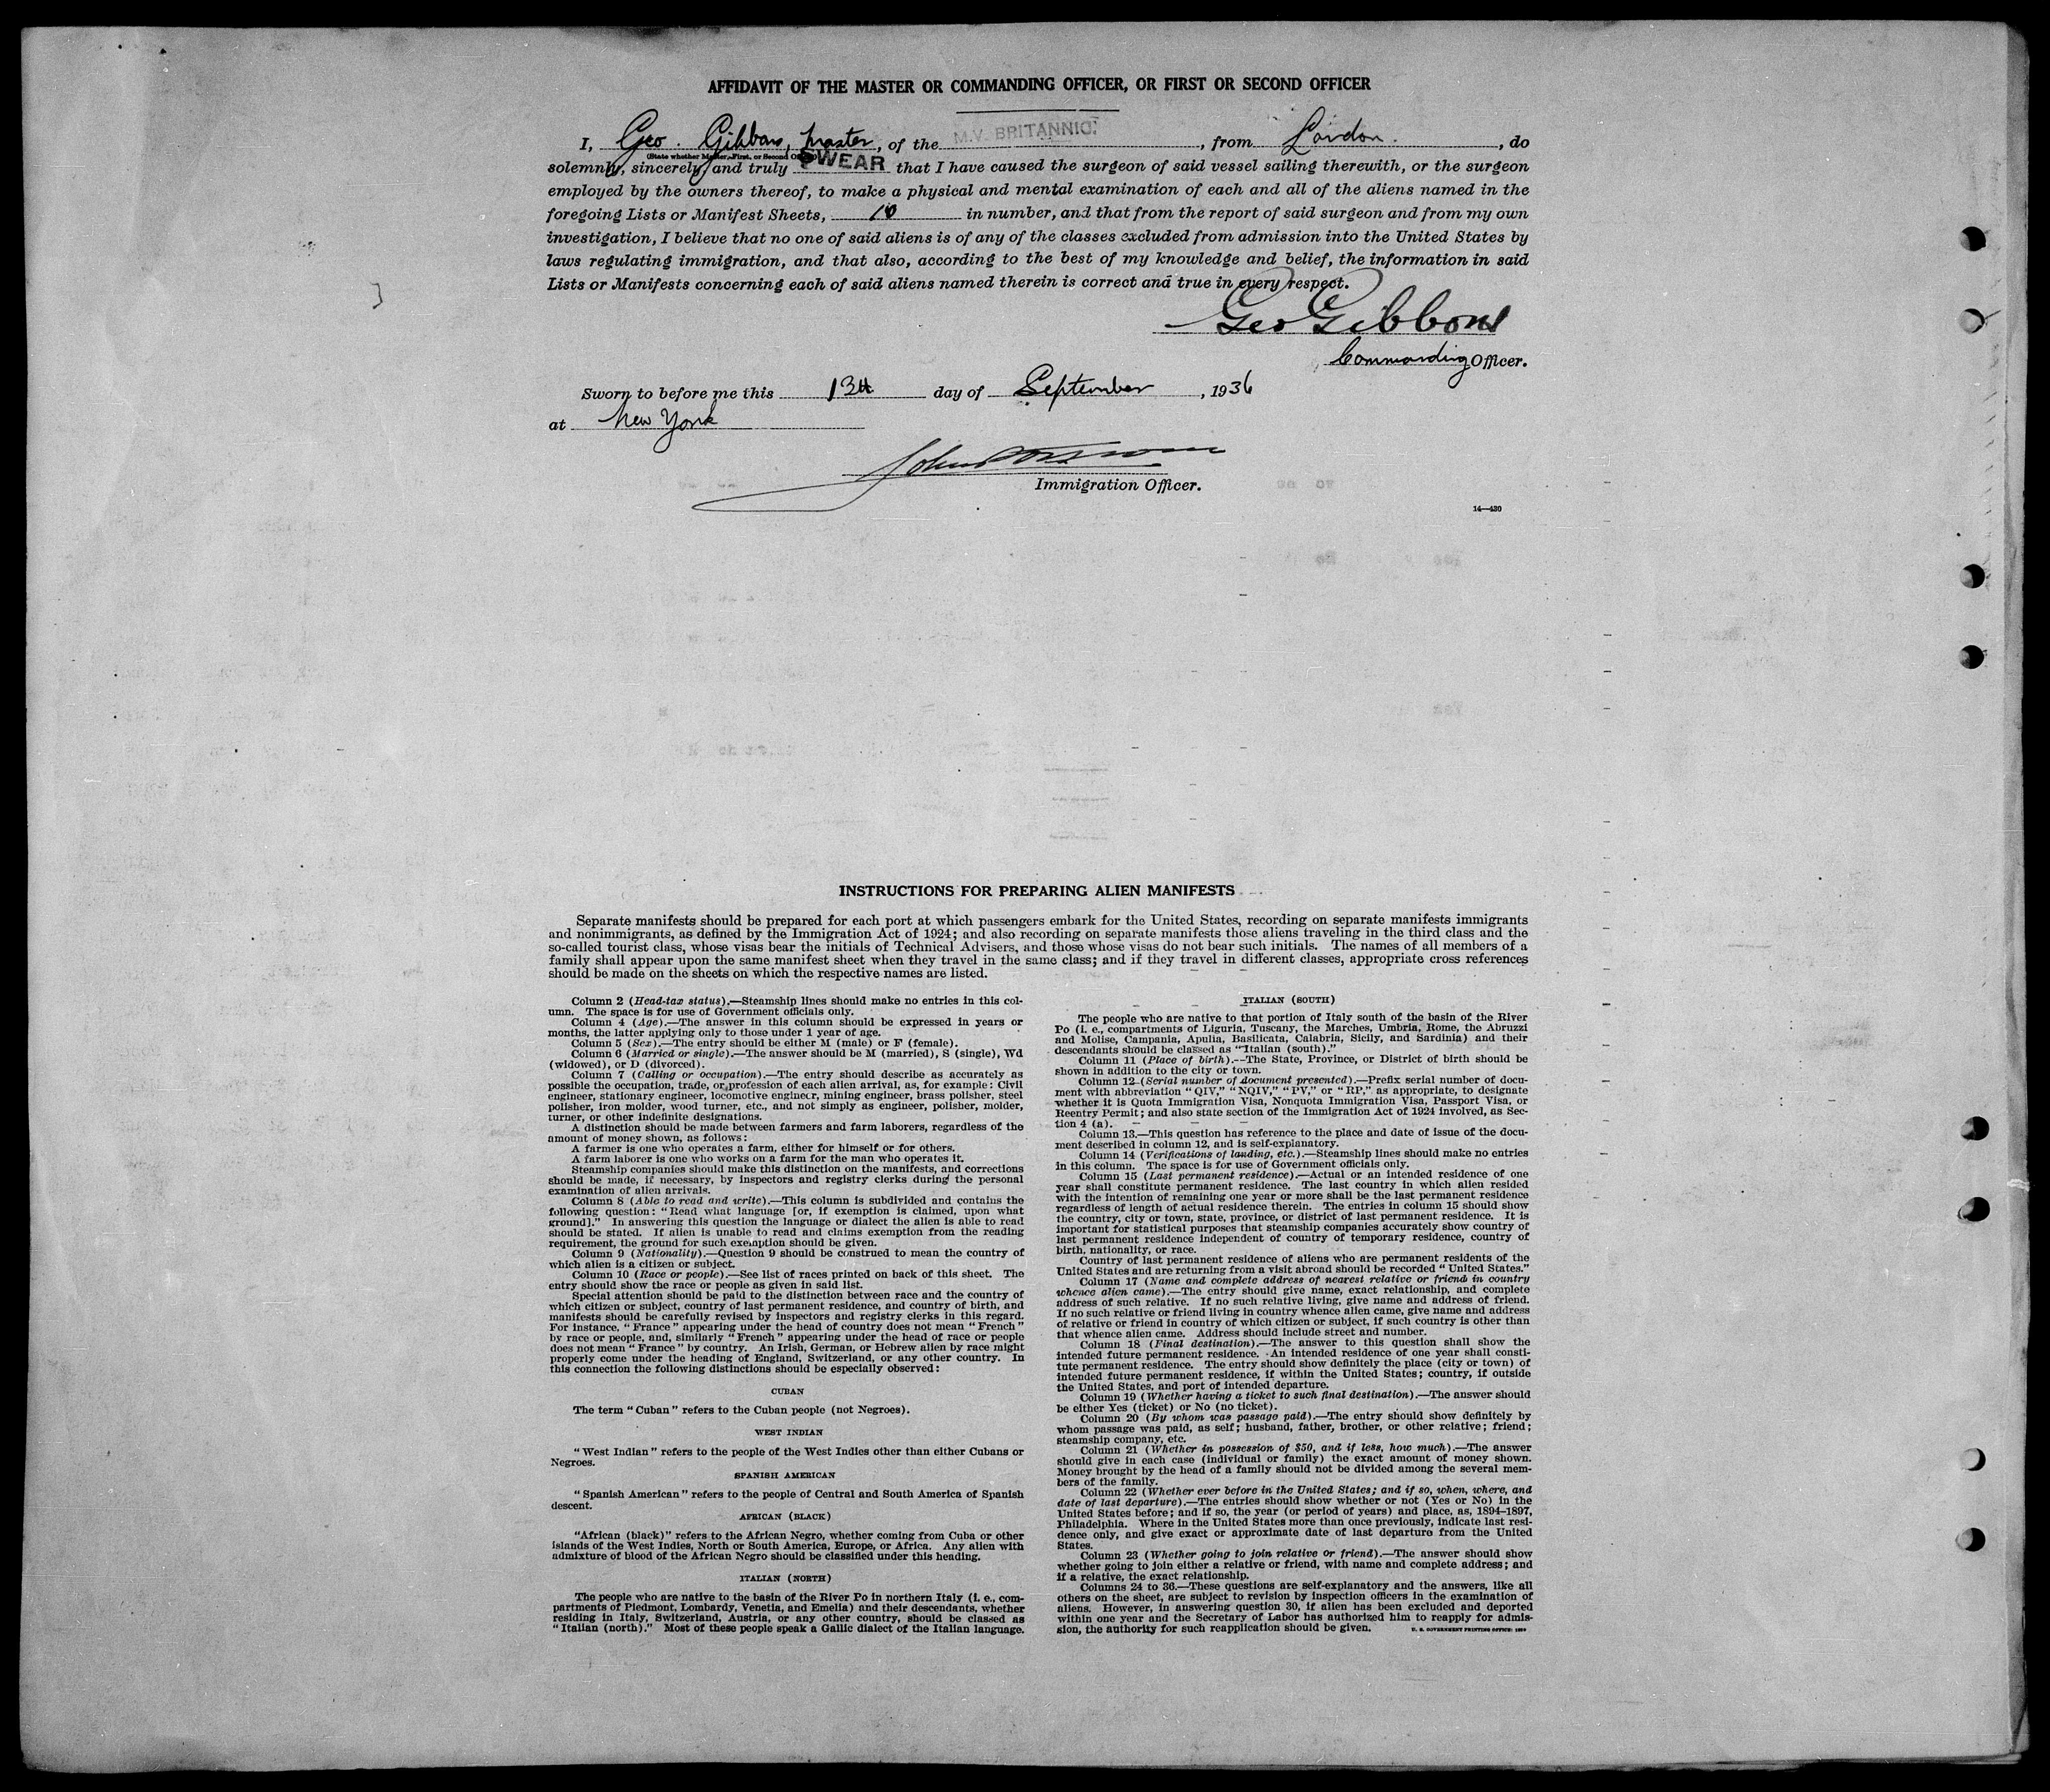 AFFIDAVIT OF THE MASTER OR COMMANDING OFFICER, OR FIRST OR SECOND OFFICER
I, Geo. Gibbons, Master, of the M.V. BRITANNIC, from London., do
(State whether Master, First, or Second Officer)
solemnly, sincerely and truly SWEAR that I have caused the surgeon of said vessel sailing therewith, or the surgeon
employed by the owners thereof, to make a physical and mental examination of each and all of the aliens named in the
foregoing Lists or Manifest Sheets, 10 in number, and that from the report of said surgeon and from my own
investigation, I believe that no one of said aliens is of any of the classes excluded from admission into the United States by
laws regulating immigration, and that also, according to the best of my knowledge and belief, the information in said
Lists or Manifests concerning each of said aliens named therein is correct and true in every respect.
Geo Gibbons
Commanding Officer.
Sworn to before me this 13th day of September, 1936
at New York
Immigration Officer.
14—430
INSTRUCTIONS FOR PREPARING ALIEN MANIFESTS
Separate manifests should be prepared for each port at which passengers embark for the United States, recording on separate manifests immigrants
and nonimmigrants, as defined by the Immigration Act of 1924; and also recording on separate manifests those aliens traveling in the third class and the
so-called tourist class, whose visas bear the initials of Technical Advisers, and those whose visas do not bear such initials. The names of all members of a
family shall appear upon the same manifest sheet when they travel in the same class; and if they travel in different classes, appropriate cross references
should be made on the sheets on which the respective names are listed.
Column 2 (Head-tax status).—Steamship lines should make no entries in this col-
umn. The space is for use of Government officials only.
Column 4 (Age).—The answer in this column should be expressed in years or
months, the latter applying only to those under 1 year of age.
Column 5 (Sex).—The entry should be either M (male) or F (female).
Column 6 (Married or single).—The answer should be M (married), S (single), Wd
(widowed), or D (divorced).
Column 7 (Calling or occupation).—The entry should describe as accurately as
possible the occupation, trade, or profession of each alien arrival, as, for example: Civil
engineer, stationary engineer, locomotive engineer, mining engineer, brass polisher, steel
polisher, iron molder, wood turner, etc., and not simply as engineer, polisher, molder,
turner, or other indefinite designations.
A distinction should be made between farmers and farm laborers, regardless of the
amount of money shown, as follows:
A farmer is one who operates a farm, either for himself or for others.
A farm laborer is one who works on a farm for the man who operates it.
Steamship companies should make this distinction on the manifests, and corrections
should be made, if necessary, by inspectors and registry clerks during the personal
examination of alien arrivals.
Column 8 (Able to read and write).—This column is subdivided and contains the
following question: "Read what language [or, if exemption is claimed, upon what
ground]." In answering this question the language or dialect the alien is able to read
should be stated. If alien is unable to read and claims exemption from the reading
requirement, the ground for such exemption should be given.
Column 9 (Nationality).—Question 9 should be construed to mean the country of
which alien is a citizen or subject.
Column 10 (Race or people).—See list of races printed on back of this sheet. The
entry should show the race or people as given in said list.
Special attention should be paid to the distinction between race and the country of
which citizen or subject, country of last permanent residence, and country of birth, and
manifests should be carefully revised by inspectors and registry clerks in this regard.
For instance, "France" appearing under the head of country does not mean "French"
by race or people, and, similarly "French" appearing under the head of race or people
does not mean "France" by country. An Irish, German, or Hebrew alien by race might
properly come under the heading of England, Switzerland, or any other country. In
this connection the following distinctions should be especially observed:
CUBAN
The term "Cuban" refers to the Cuban people (not Negroes).
WEST INDIAN
"West Indian" refers to the people of the West Indies other than either Cubans or
Negroes.
SPANISH AMERICAN
"Spanish American" refers to the people of Central and South America of Spanish
descent.
AFRICAN (BLACK)
"African (black)" refers to the African Negro, whether coming from Cuba or other
islands of the West Indies, North or South America, Europe, or Africa. Any alien with
admixture of blood of the African Negro should be classified under this heading.
ITALIAN (NORTH)
The people who are native to the basin of the River Po in northern Italy (i. e., com-
partments of Piedmont, Lombardy, Venetia, and Emelia) and their descendants, whether
residing in Italy, Switzerland, Austria, or any other country, should be classed as
"Italian (north)." Most of these people speak a Gallic dialect of the Italian language.
ITALIAN (SOUTH)
The people who are native to that portion of Italy south of the basin of the River
Po (i. e., compartments of Liguria, Tuscany, the Marches, Umbria, Rome, the Abruzzi
and Molise, Campania, Apulia, Basilicata, Calabria, Sicily, and Sardinia) and their
descendants should be classed as "Italian (south)."
Column 11 (Place of birth).—The State, Province, or District of birth should be
shown in addition to the city or town.
Column 12 (Serial number of document presented).—Prefix serial number of docu-
ment with abbreviation "QIV," "NQIV," "PV," or "RP," as appropriate, to designate
whether it is Quota Immigration Visa, Nonquota Immigration Visa, Passport Visa, or
Reentry Permit; and also state section of the Immigration Act of 1924 involved, as Sec-
tion 4 (a).
Column 13.—This question has reference to the place and date of issue of the docu-
ment described in column 12, and is self-explanatory.
Column 14 (Verifications of landing, etc.).—Steamship lines should make no entries
in this column. The space is for use of Government officials only.
Column 15 (Last permanent residence).—Actual or an intended residence of one
year shall constitute permanent residence. The last country in which alien resided
with the intention of remaining one year or more shall be the last permanent residence
regardless of length of actual residence therein. The entries in column 15 should show
the country, city or town, state, province, or district of last permanent residence. It is
important for statistical purposes that steamship companies accurately show country of
last permanent residence independent of country of temporary residence, country of
birth, nationality, or race.
Country of last permanent residence of aliens who are permanent residents of the
United States and are returning from a visit abroad should be recorded "United States."
Column 17 (Name and complete address of nearest relative or friend in country
whence alien came).—The entry should give name, exact relationship, and complete
address of such relative. If no such relative living, give name and address of friend.
If no such relative or friend living in country whence alien came, give name and address
of relative or friend in country of which citizen or subject, if such country is other than
that whence alien came. Address should include street and number.
Column 18 (Final destination).—The answer to this question shall show the
intended future permanent residence. An intended residence of one year shall consti-
tute permanent residence. The entry should show definitely the place (city or town) of
intended future permanent residence, if within the United States; country, if outside
the United States, and port of intended departure.
Column 19 (Whether having a ticket to such final destination).—The answer should
be either Yes (ticket) or No (no ticket).
Column 20 (By whom was passage paid).—The entry should show definitely by
whom passage was paid, as self; husband, father, brother, or other relative; friend;
steamship company, etc.
Column 21 (Whether in possession of $50, and if less, how much).—The answer
should give in each case (individual or family) the exact amount of money shown.
Money brought by the head of a family should not be divided among the several mem-
bers of the family.
Column 22 (Whether ever before in the United States; and if so, when, where, and
date of last departure).—The entries should show whether or not (Yes or No) in the
United States before; and if so, the year (or period of years) and place, as, 1894–1897,
Philadelphia. Where in the United States more than once previously, indicate last resi-
dence only, and give exact or approximate date of last departure from the United
States.
Column 23 (Whether going to join relative or friend).—The answer should show
whether going to join either a relative or friend, with name and complete address; and
if a relative, the exact relationship.
Columns 24 to 36.—These questions are self-explanatory and the answers, like all
others on the sheet, are subject to revision by inspection officers in the examination of
aliens. However, in answering question 30, if alien has been excluded and deported
within one year and the Secretary of Labor has authorized him to reapply for admis-
sion, the authority for such reapplication should be given.
U. S. GOVERNMENT PRINTING OFFICE: